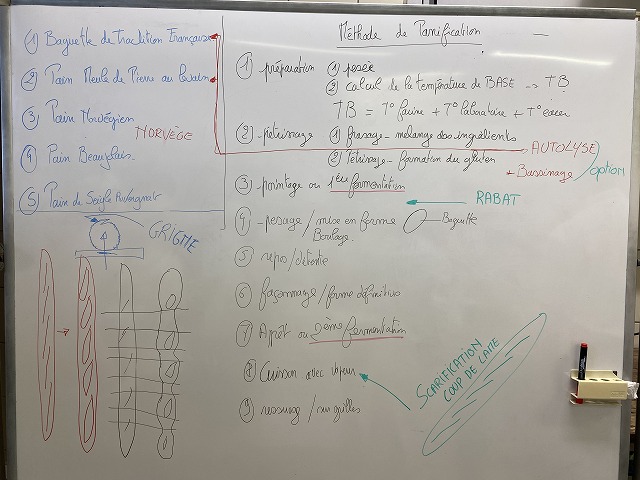 ① Baguette de tradition Française
② Pain Meule de Pierre au levain
③ Pain Norvégien
NORVÈGE
④ Pain Beaujolais.
⑤ Pain de Seigle Auvergnat
GRIGNE
Méthode de Panification
① préparation ① pesée
② calcul de la température de BASE → TB
TB = T° farine + T° laboratoire + T° eau
② - pétrissage ① frasage - mélange des ingrédients
AUTOLYSE
② Pétrissage - formation du gluten
+ Bassinage
option
③ pointage ou 1ère fermentation
RABAT
④ - pesage / mise en forme
Boulage.
Baguette
⑤ repos / détente
⑥ façonnage / forme définitive
⑦ Apprêt ou 2ème fermentation
⑧ Cuisson avec vapeur
⑨ ressuage / sur grilles
SCARIFICATION
COUP DE LAME